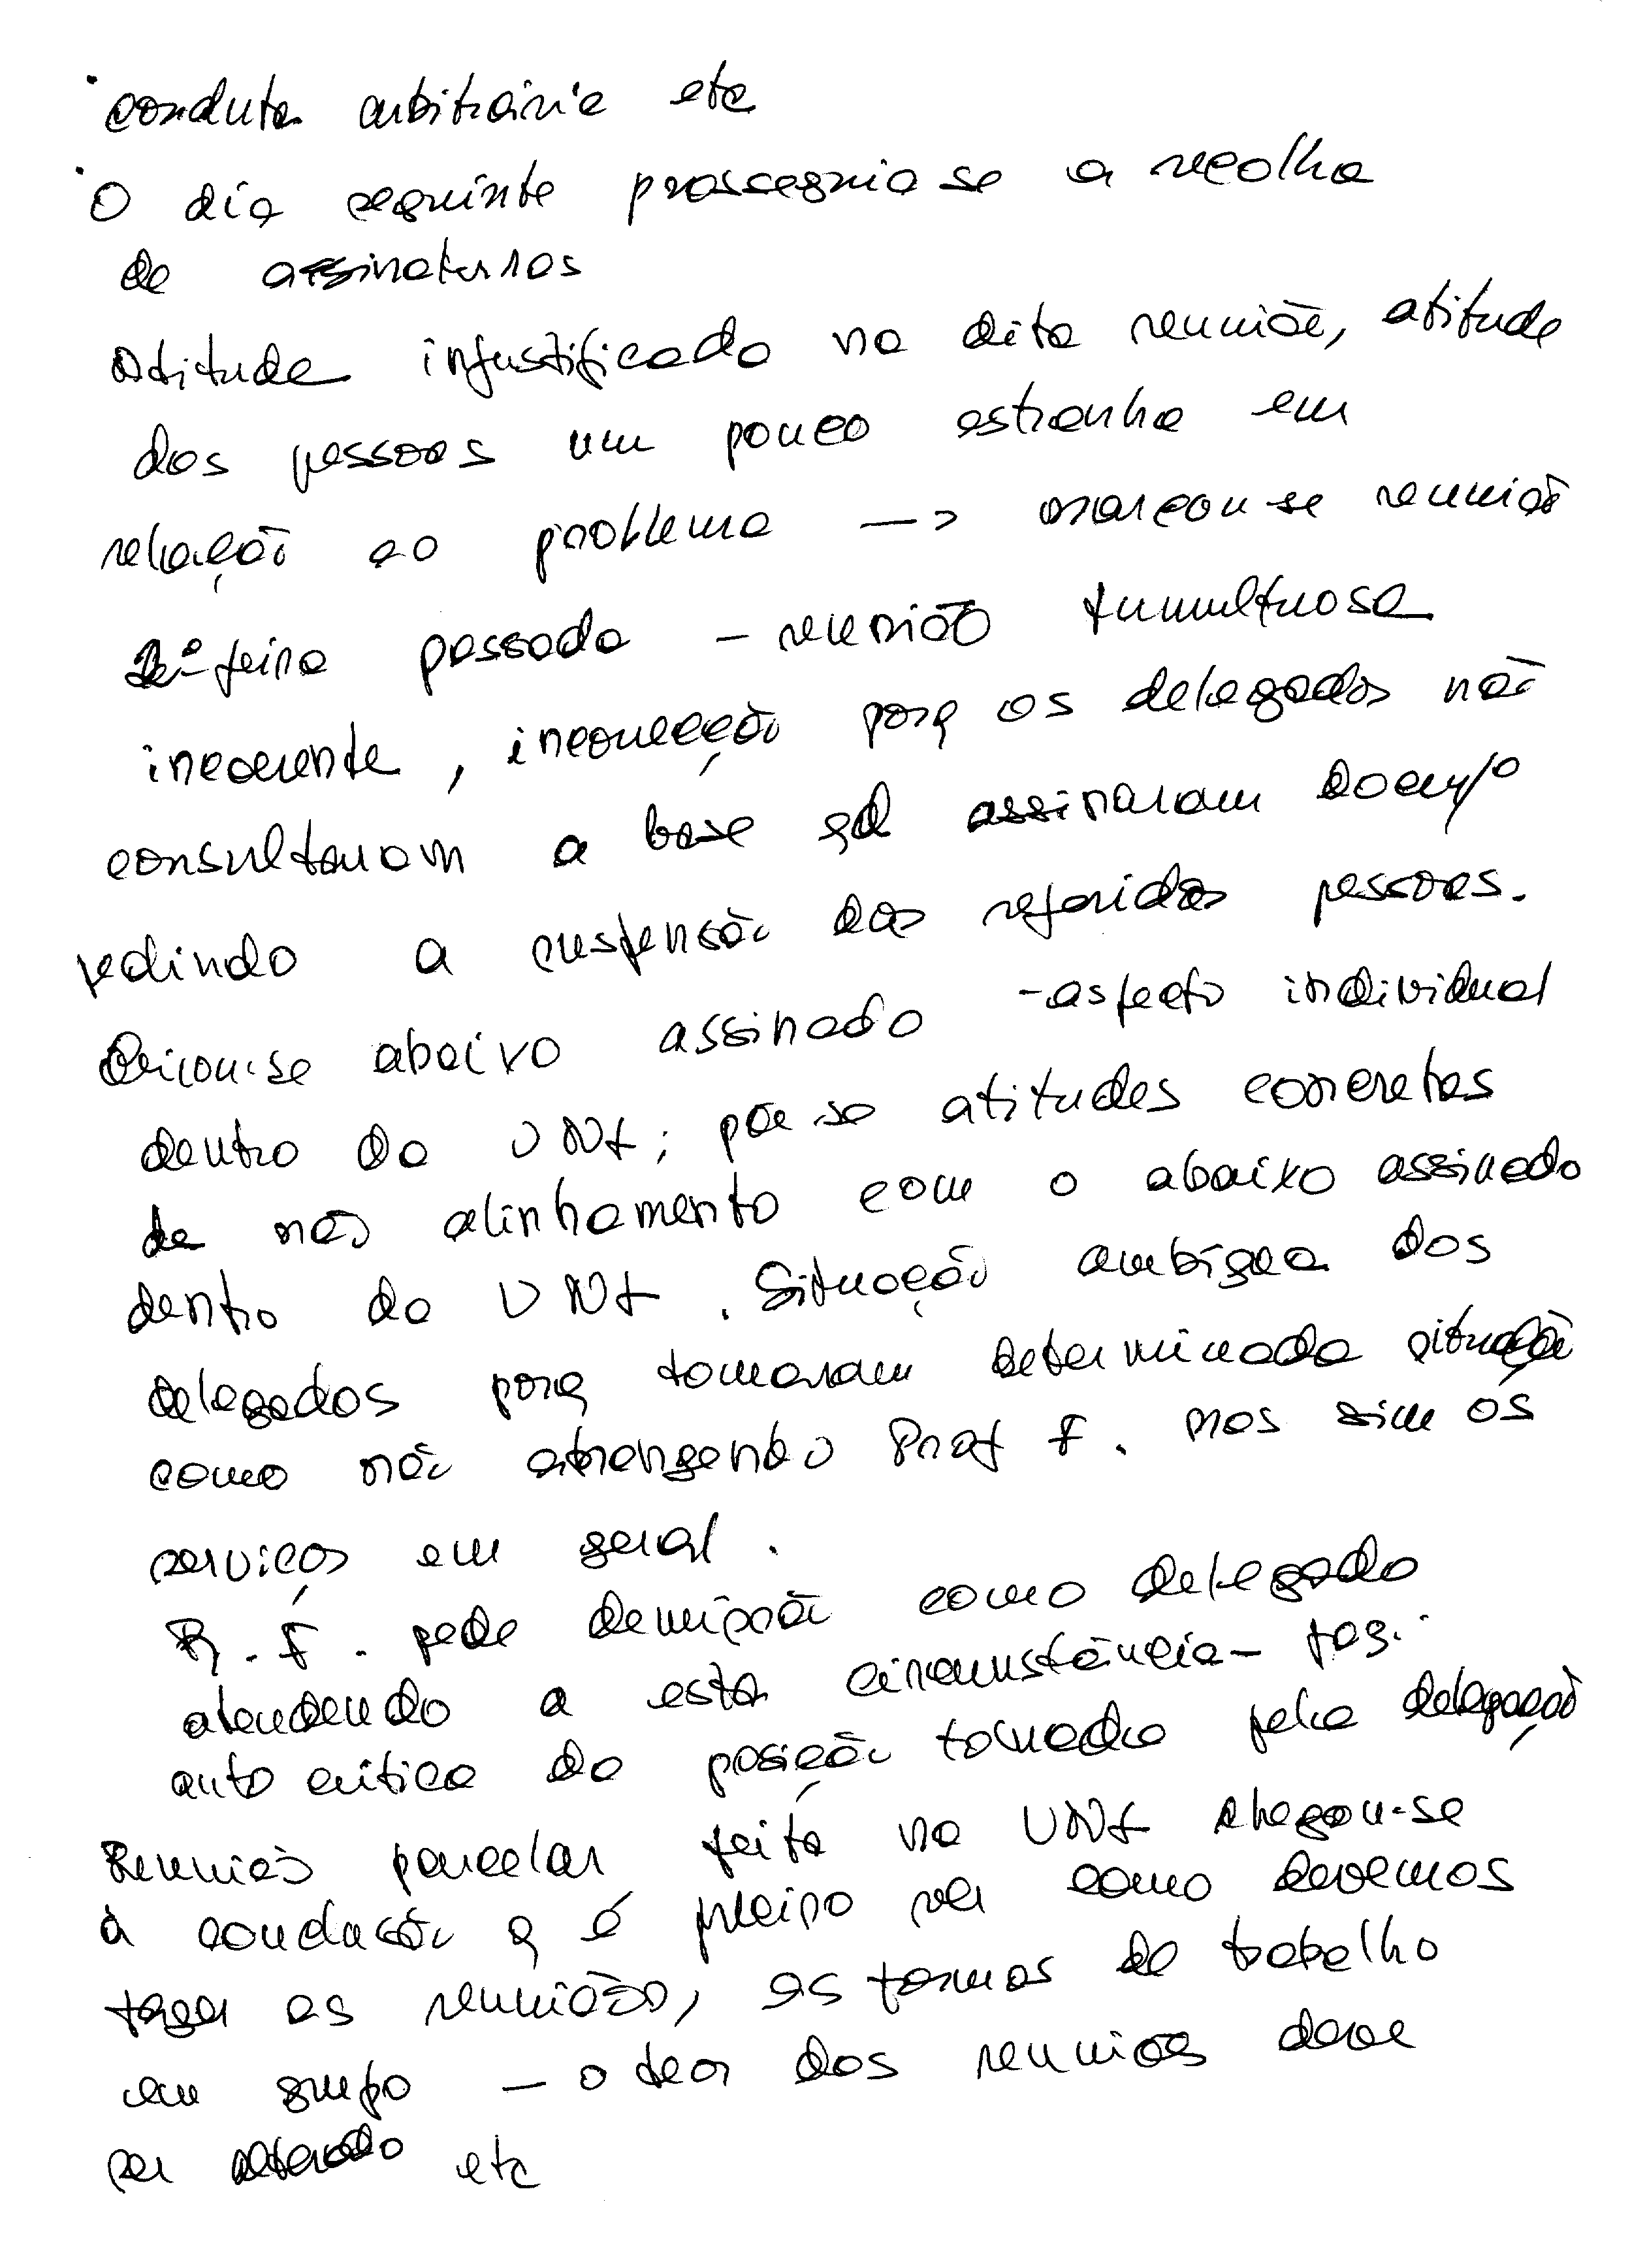 · conduta arbitrária etc
· O dia seguinte prosseguia se a recolha
de assinaturas
Atitude injustificada na dita reunião, atitude
das pessoas um pouco estranha em
relação ao problema —> marcou-se reunião
2ª feira passada – reunião tumultuosa
incoerente, incorreção porq os delegados não
consultaram a base qd assinaram
pedindo a suspensão das referidas pessoas.
Criou-se abaixo assinado – aspecto individual
dentro da UNL; põe-se atitudes concretas
de não alinhamento com o abaixo assinado
dentro da UNL. Situação ambígua dos
delegados porq tomaram determinada situação
como não abrangendo Prof F. mas sim os
serviços em geral.
R. F. pede demissão como delegado
atendendo a esta circunstância – faz
auto crítica da posição tomada pela delegação
Reunião parcelar feita na UNL chegou-se
à conclusão q é preciso ver como devemos
fazer as reuniões, as formas de trabalho
em grupo – o teor das reuniões deve
ser alterado etc